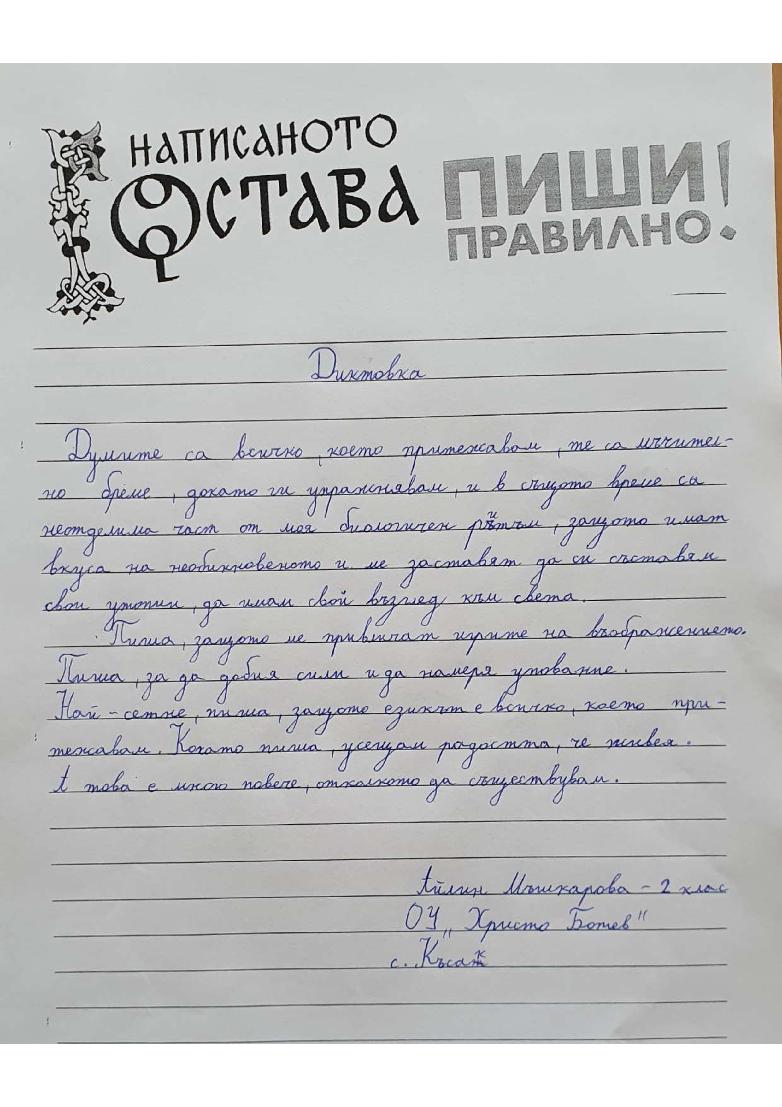 НАПИСАНОТО
ОСТАВА
ПИШИ!
ПРАВИЛНО.
Диктовка
Думите са всичко, което притежавам, те са мъчител-
но бреме, докато ги упражнявам, и в същото време са
неотделима част от моя биологичен ритъм, защото имат
вкуса на необикновеното и ме заставят да си съставям
свои утопии, да имам свой възглед към света.
Пиша, защото ме привличат игрите на въображението.
Пиша, за да добия сили и да намеря упование.
Най-сетне, пиша, защото езикът е всичко, което при-
тежавам. Когато пиша, усещам радостта, че живея.
А това е много повече, отколкото да съществувам.
Айлин Мъшкарова - 2 клас
ОУ „Христо Ботев"
с. Късак